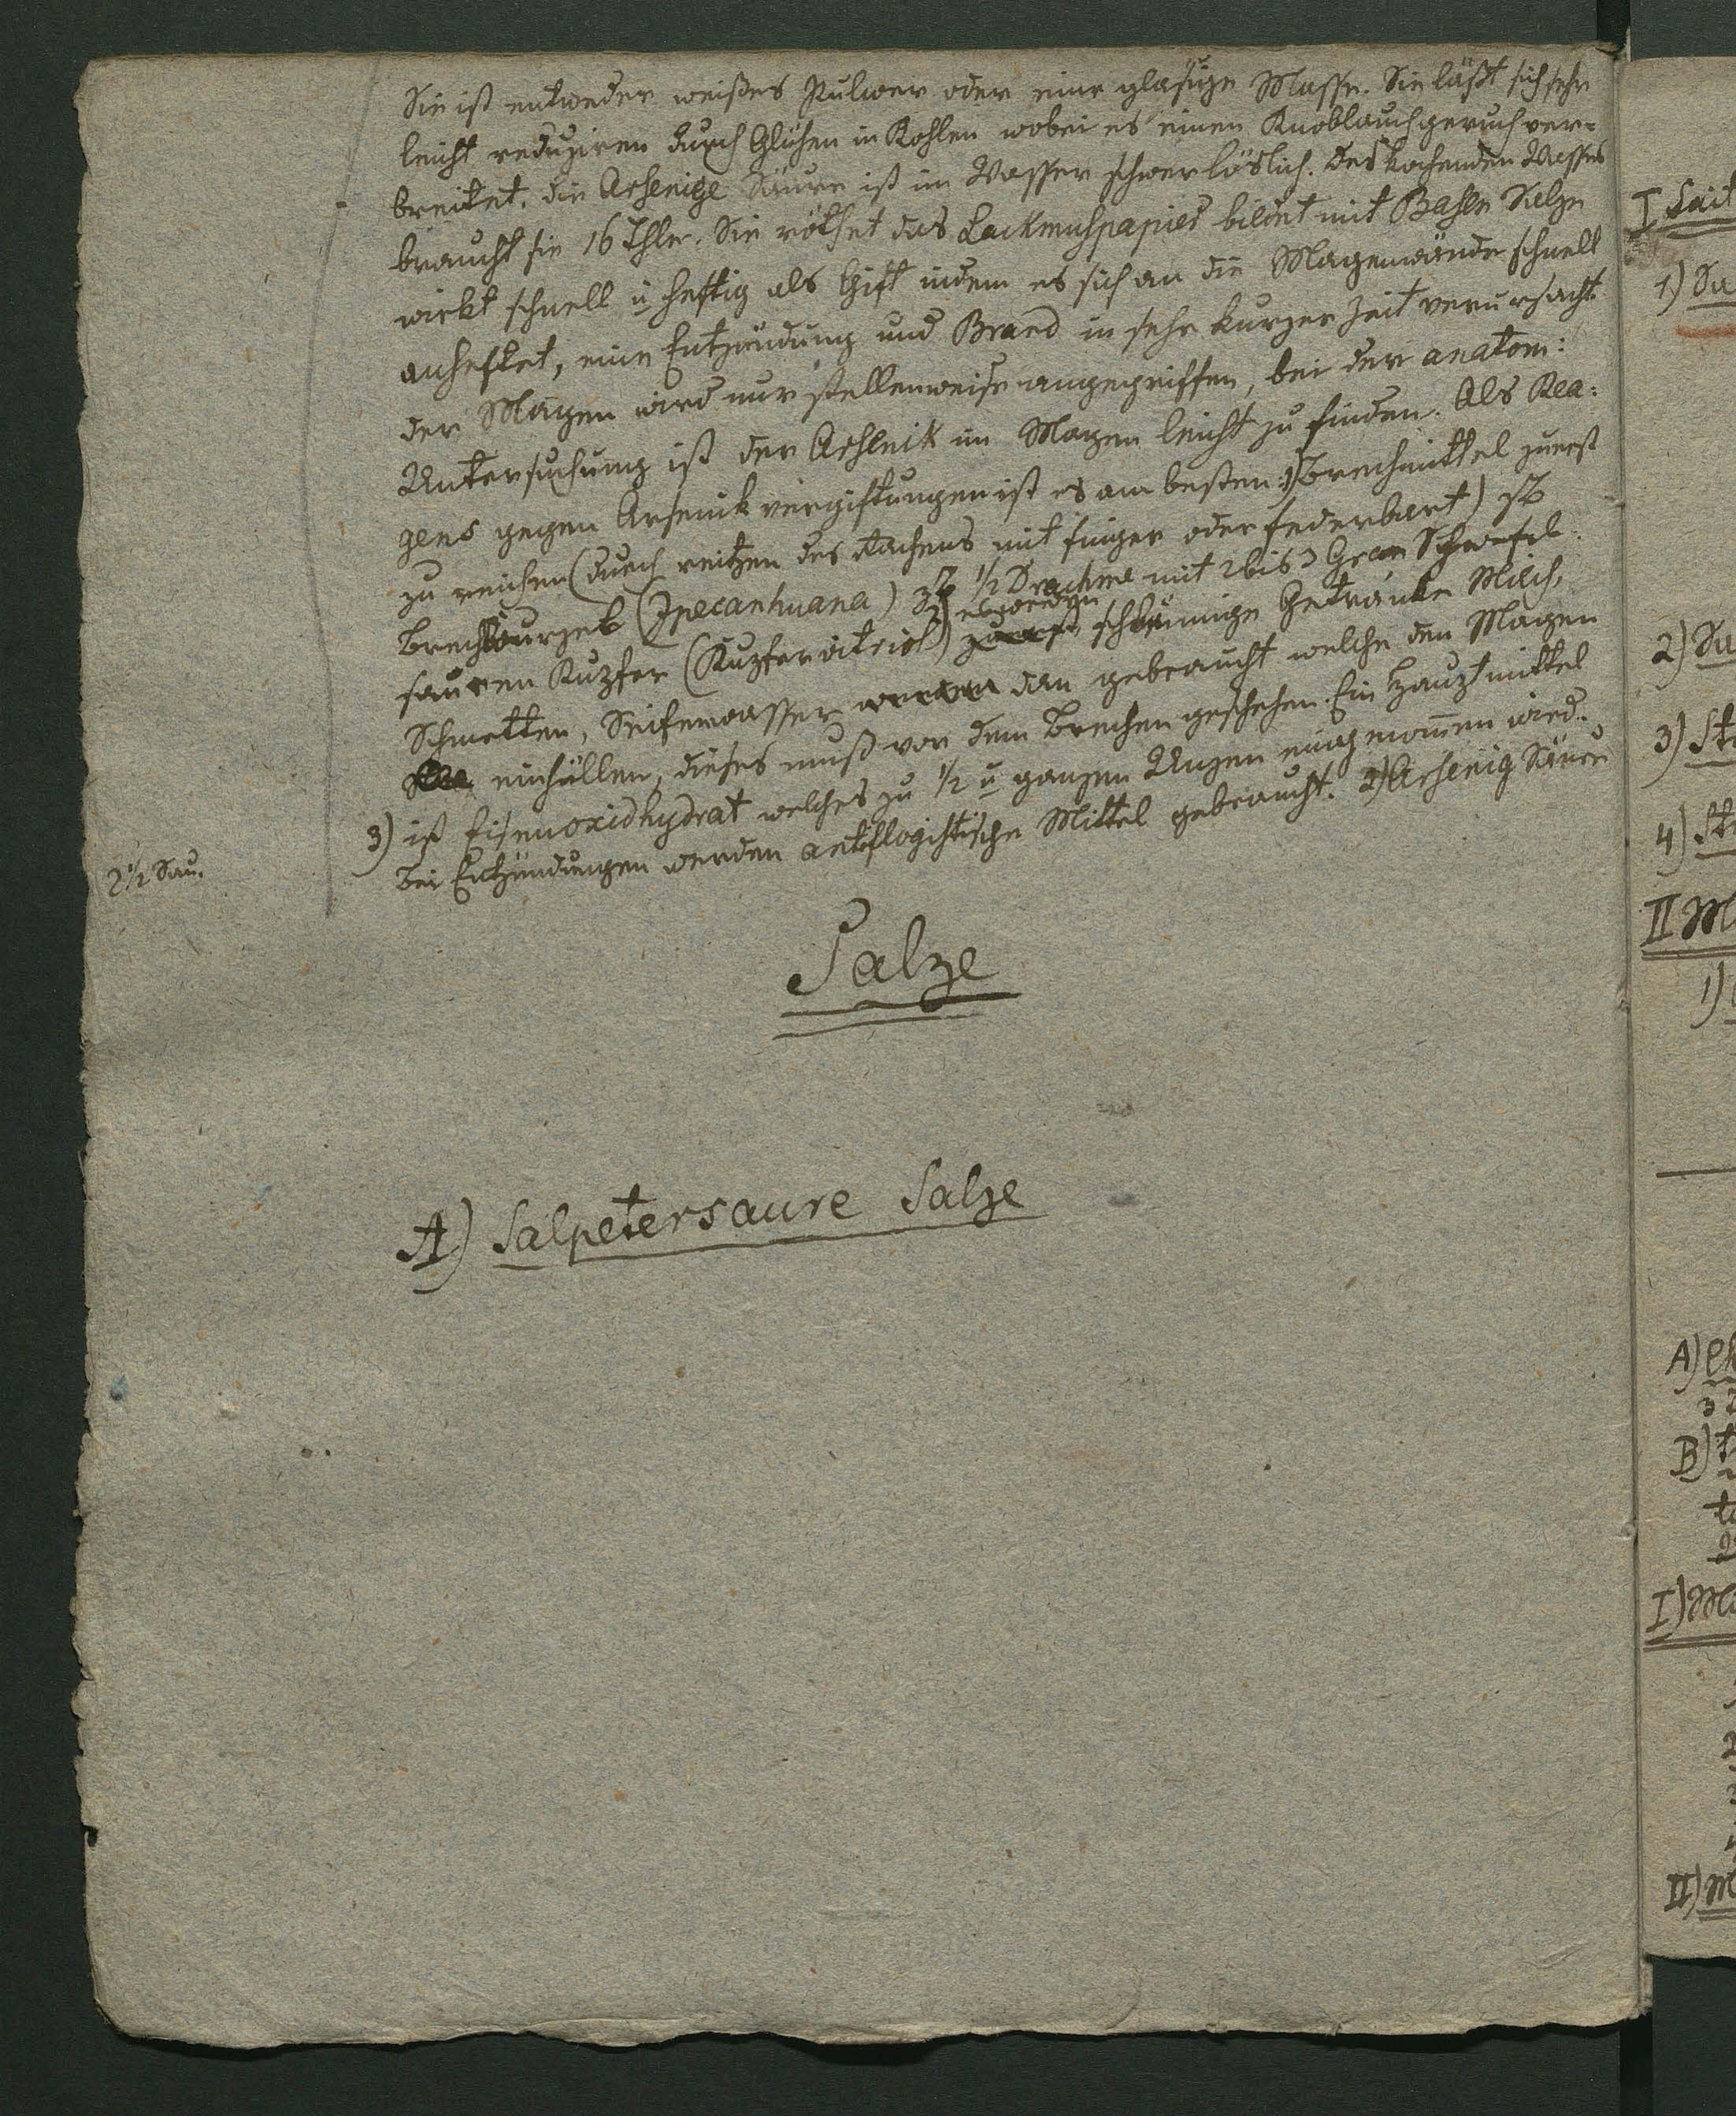 Sie ist entweder weißes Pulver oder eine glasige Masse. Sie läßt sich sehr
leicht reduziren durch Glühen in Kohlen wobei es einen Knoblauchgeruch ver-
breitet. die Arsenige Säure ist im Wasser schwerlöslich. des kochenden Wassers
braucht sie 16 Thle. Sie röthet das Lackmuspapier bildet mit Basen Salze
wirkt schnell u heftig als Gift indem es sich an die Magenwände schnell
anheftet, eine Entzündung und Brand in sehr kurzer Zeit verursacht
der Magen wird nur stellenweise angegriffen, bei der anatom:
Untersuchung ist der Arsenik im Magen leicht zu finden. Als Rea:
gens gegen Arsenikvergiftungen ist es am besten: 1) Brechmittel zuerst
zu reichen (durch reitzen des Rachens mit finger oder federbart)
Brechwurzel (Ipecanhuana) 1/2 Drachme mit 2 bis 3 Gran Schwefel
sauren Kupfer (Kupfervitriol) 2) schleimige Getränke Milch,
Schmetten, Seifenwasser dan gebraucht welche den Magen
einhüllen, dieses muß vor dem Brechen geschehen. Ein Hauptmittel
3) ist Eisenoxidhydrat welches zu 1/2 u ganzen Unzen eingenommen wird.
Bei Entzündungen werden antiflogistische Mittel gebraucht. 2) Arsenig Säure
2 1/2 Sau.
Salze
A) Salpetersaure Salze
I
1) Su
2) Su
3) St
4) St
II M
1)
A)
3
B) t
I) Ma
II) M